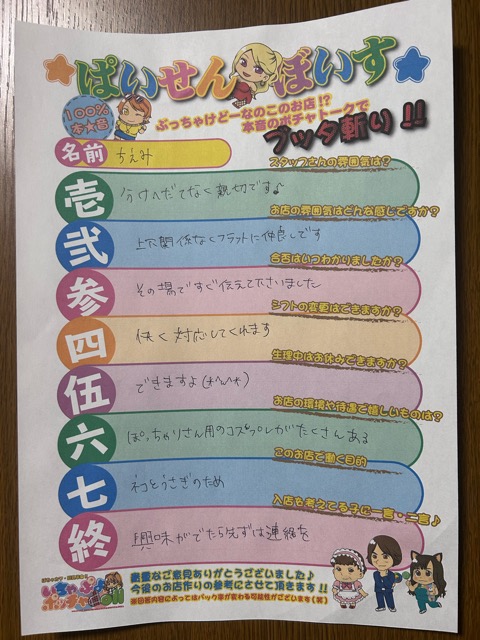 ぱいせんぼいす
100%
本★音
ぶっちゃけどーなのこのお店!?
本音のポチャトークで
ブッタ斬り!!
名前 ちえみ
スタッフさんの雰囲気は?
壱 分けへだてなく親切です♪
お店の雰囲気はどんな感じですか?
弐 上下関係なくフラットに仲良しです
合否はいつわかりましたか?
参 その場ですぐ伝えて下さいました
シフトの変更はできますか?
四 快く対応してくれます
生理中はお休みできますか?
伍 できますよ(*^^*)
お店の環境や待遇で嬉しいものは?
六 ぽっちゃりさん用のコスプレがたくさんある
このお店で働く目的
七 ネコとうさぎのため
入店も考えてる子に一言・二言♪
終 興味がでたら先ずは連絡を
貴重なご意見ありがとうございました♪
今後のお店作りの参考にさせて頂きます!!
※回答内容によってはバック率が変わる可能性がございます(笑)